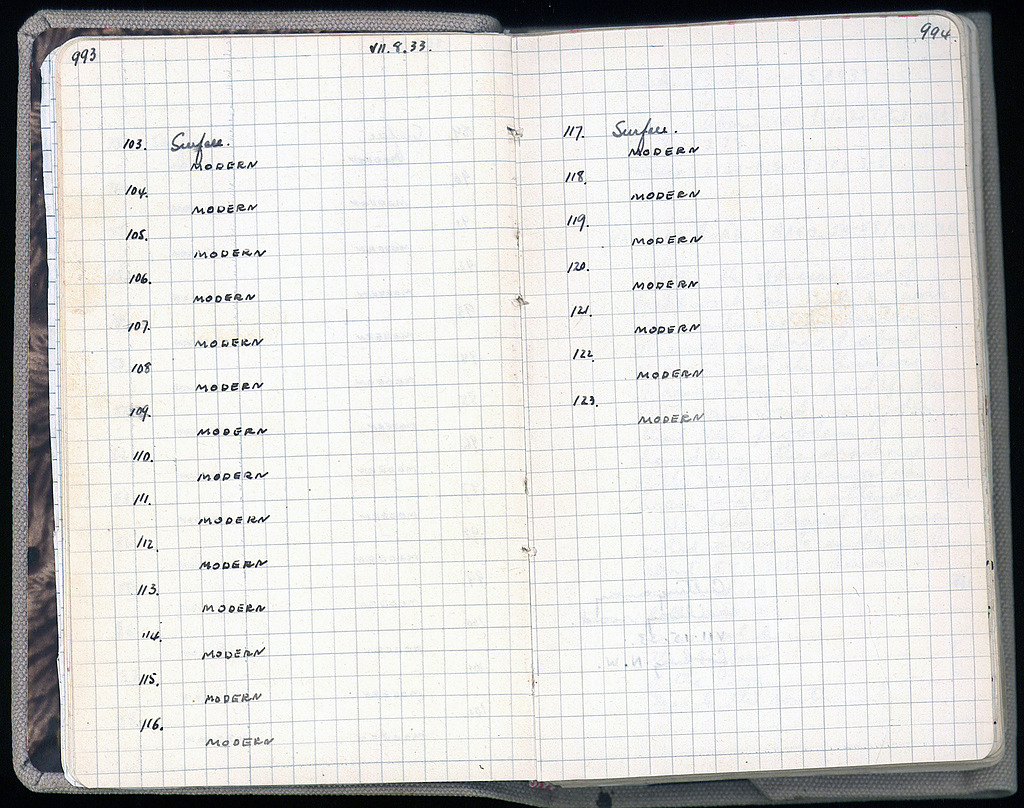 993
VII.8.33.
103. Surface.
MODERN
104.
MODERN
105.
MODERN
106.
MODERN
107.
MODERN
108
MODERN
109.
MODERN
110.
MODERN
111.
MODERN
112.
MODERN
113.
MODERN
114.
MODERN
115.
MODERN
116.
MODERN
994
117. Surface.
MODERN
118.
MODERN
119.
MODERN
120.
MODERN
121.
MODERN
122.
MODERN
123.
MODERN